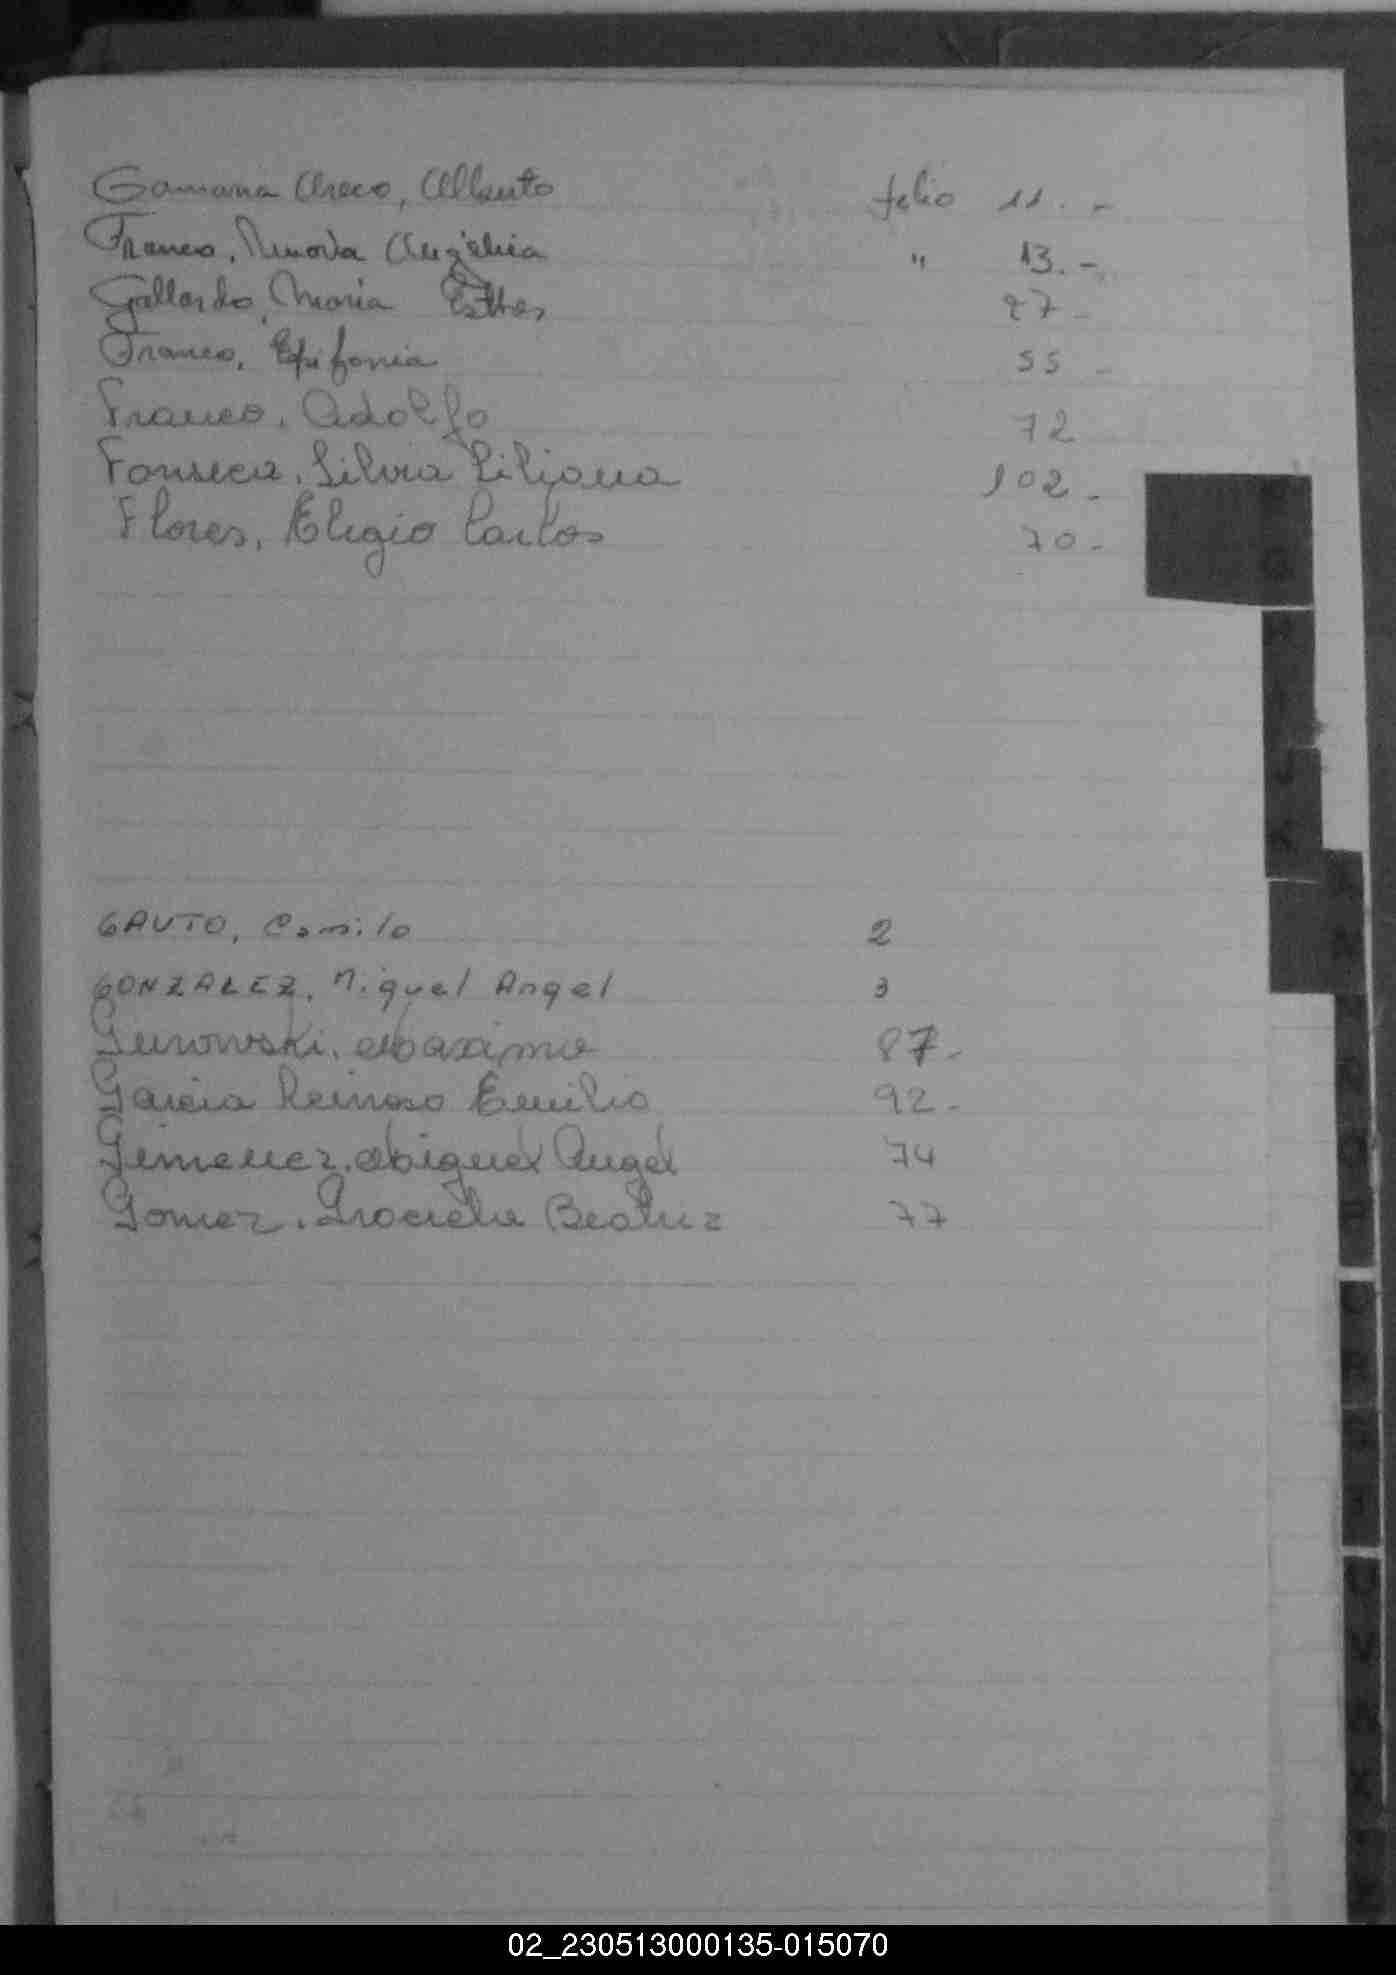 Gamarra Areco, Alberto folio 11.-
Franco, Angélica " 13.-
Gallardo, María Esther 27-
Franco, Epifania 55-
Franco, Adolfo 72
Fonseca, Silvia Liliana 102-
Flores, Eligio Carlos 70-
GAUTO, Camilo 2
GONZALEZ, Miguel Angel 3
Maximo 87-
Garcia Reinoso Emilio 92-
Gimenez, Miguel Angel 74
Gomez, Graciela Beatriz 77
02_230513000135-015070